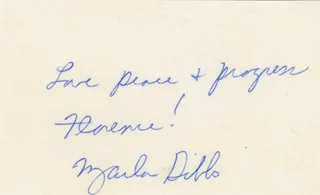 Love peace & progress
Florence!
Marla Gibbs